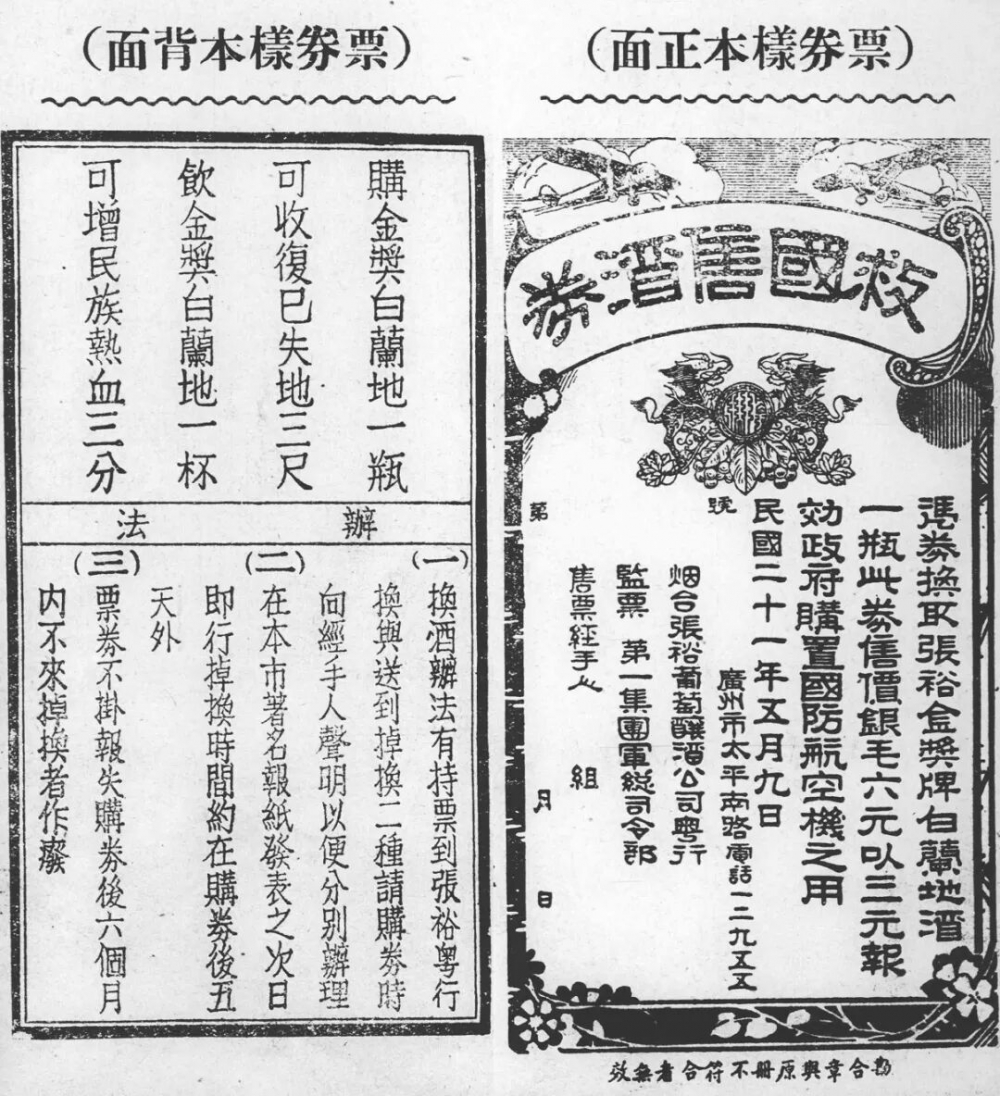 (票券樣本正面)
救國售酒券
憑券換取張裕金獎牌白蘭地酒
一瓶此券售價銀毛六元以三元報
効政府購置國防航空機之用
民國二十一年五月九日
號
廣州市太平南路電話一二九五五
烟台張裕葡萄釀酒公司粵行
監票 第一集團軍総司令部
售票經手人 組
第 月 日
勘合章與原冊不符合者無效
(票券樣本背面)
購金獎白蘭地一瓶
可收復已失地三尺
飲金獎白蘭地一杯
可增民族熱血三分
辦法
(一)換酒辦法有持票到張裕粵行
換與送到掉換二種請購券時
向經手人聲明以便分别辦理
(二)在本市著名報紙發表之次日
即行掉換時間約在購券後五
天外
(三)票券不掛報失購券後六個月
内不來掉換者作廢